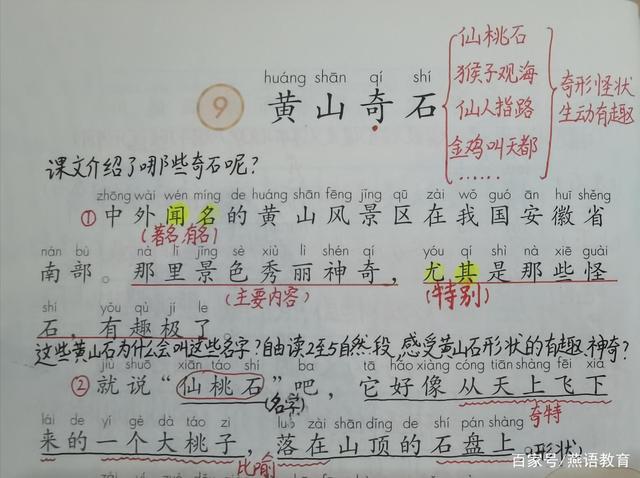 huáng shān qí shí
9 黄山奇石
仙桃石
猴子观海
仙人指路
金鸡叫天都
……
奇形怪状
生动有趣
课文介绍了哪些奇石呢?
zhōng wài wén míng de huáng shān fēng jǐng qū zài wǒ guó ān huī shěng
①中外闻名的黄山风景区在我国安徽省
(著名,有名)
nán bù nà lǐ jǐng sè xiù lì shén qí yóu qí shì nà xiē guài
南部。那里景色秀丽神奇,尤其是那些怪
(主要内容) (特别)
shí yǒu qù jí le
石,有趣极了。
这些黄山石为什么会叫这些名字?自由读2至5自然段,感受黄山石形状的有趣、神奇?
jiù shuō xiān táo shí ba tā hǎo xiàng cóng tiān shàng fēi xià
②就说“仙桃石”吧,它好像从天上飞下
(名字) 奇特
lái de yí gè dà táo zi luò zài shān dǐng de shí pán shàng
来的一个大桃子,落在山顶的石盘上。
比喻 形状
百家号/燕语教育